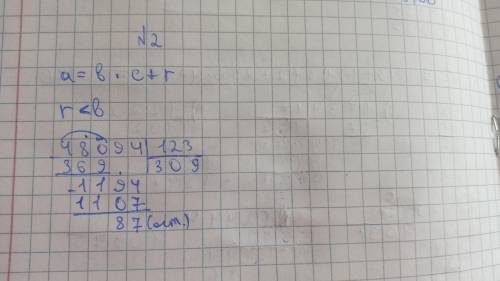 №2
a = b · c + r
r < b
48094 | 123
369 | 309
- 1194
1107
87 (ост.)